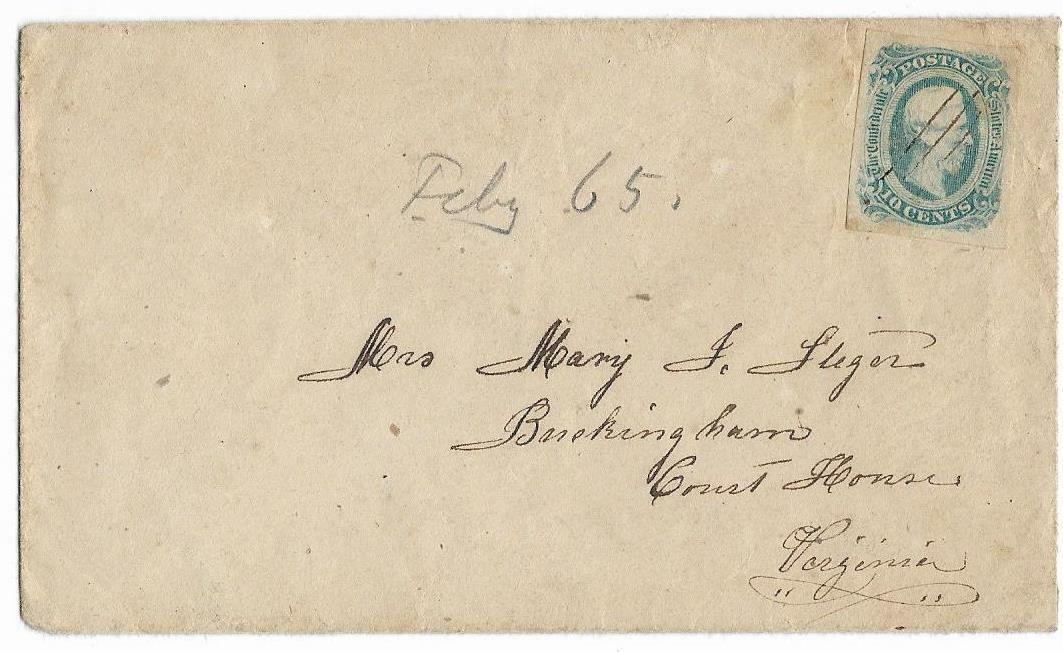 POSTAGE
The Confederate
States America
10 CENTS
Feby 65.
Mrs Mary J. Steger
Buckingham
Court House
Virginia